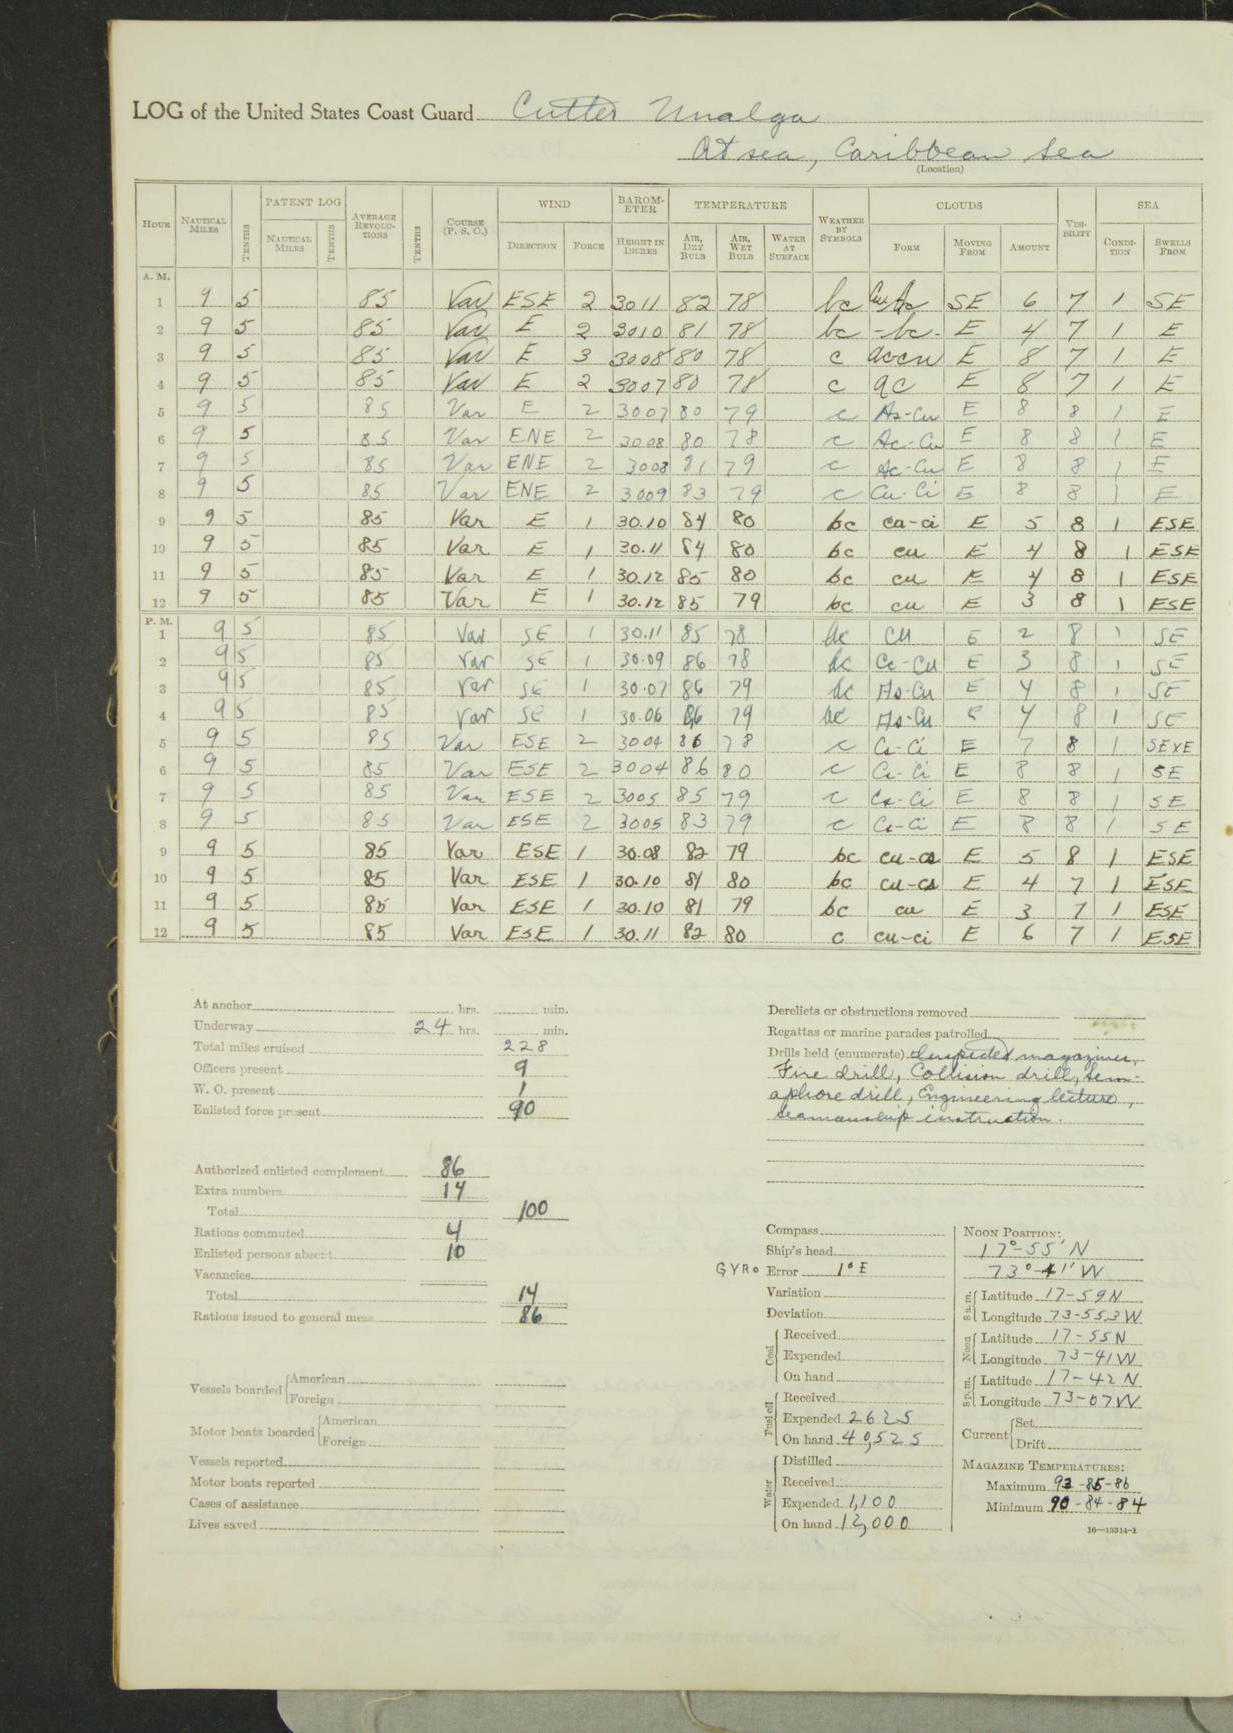 LOG of the United States Coast Guard Cutter Unalga
At sea, Caribbean Sea
(Location)
HOUR NAUTICAL MILES TENTHS PATENT LOG NAUTICAL MILES TENTHS AVERAGE REVOLUTIONS TENTHS COURSE (P. S. C.) WIND DIRECTION FORCE BAROMETER HEIGHT IN INCHES TEMPERATURE AIR, DRY BULB AIR, WET BULB WATER AT SURFACE WEATHER BY SYMBOLS CLOUDS FORM MOVING FROM AMOUNT VISIBILITY SEA CONDITION SWELLS FROM
A. M.
1 9 5 85 Var ESE 2 3011 82 78 bc SE 6 7 1 SE
2 9 5 85 Var E 2 3010 81 78 bc - bc - E 4 7 1 E
3 9 5 85 Var E 3 3008 80 78 c accu E 8 7 1 E
4 9 5 85 Var E 2 3007 80 78 c ac E 8 7 1 E
5 9 5 85 Var E 2 3007 80 79 c As-Cu E 8 8 1 E
6 9 5 85 Var ENE 2 3008 80 78 c Ac-Cu E 8 8 1 E
7 9 5 85 Var ENE 2 3008 81 79 c Ac-Cu E 8 8 1 E
8 9 5 85 Var ENE 2 3009 83 79 c Cu-Ci E 8 8 1 E
9 9 5 85 Var E 1 30.10 84 80 bc cu-ci E 5 8 1 ESE
10 9 5 85 Var E 1 30.11 84 80 bc cu E 4 8 1 ESE
11 9 5 85 Var E 1 30.12 85 80 bc cu E 4 8 1 ESE
12 9 5 85 Var E 1 30.12 85 79 bc cu E 3 8 1 ESE
P. M.
1 9 5 85 Var SE 1 30.11 85 78 bc Cu E 2 8 1 SE
2 9 5 85 Var SE 1 30.09 86 78 bc Cc-Cu E 3 8 1 SE
3 9 5 85 Var SE 1 30.07 86 79 bc As-Cu E 4 8 1 SE
4 9 5 85 Var SE 1 30.06 86 79 bc As-Cu E 4 8 1 SE
5 9 5 85 Var ESE 2 3004 86 78 c Cs-Ci E 7 8 1 SExE
6 9 5 85 Var ESE 2 3004 86 80 c Cs-Ci E 8 8 1 SE
7 9 5 85 Var ESE 2 3005 85 79 c Cs-Ci E 8 8 1 SE
8 9 5 85 Var ESE 2 3005 83 79 c Cs-Ci E 8 8 1 SE
9 9 5 85 Var ESE 1 30.08 82 79 bc cu-cs E 5 8 1 ESE
10 9 5 85 Var ESE 1 30.10 81 80 bc cu-cs E 4 7 1 ESE
11 9 5 85 Var ESE 1 30.10 81 79 bc cu E 3 7 1 ESE
12 9 5 85 Var ESE 1 30.11 82 80 c cu-ci E 6 7 1 ESE
At anchor hrs. min.
Underway 24 hrs. min.
Total miles cruised 228
Officers present 9
W. O. present 1
Enlisted force present 90
Authorized enlisted complement 86
Extra numbers 14
Total 100
Rations commuted 4
Enlisted persons absent 10
Vacancies
Total 14
Rations issued to general mess 86
Vessels boarded
American
Foreign
Motor boats boarded
American
Foreign
Vessels reported
Motor boats reported
Cases of assistance
Lives saved
Derelicts or obstructions removed
Regattas or marine parades patrolled
Drills held (enumerate) Inspected magazines,
Fire drill, Collision drill, Sem-
aphore drill, Engineering lecture,
seamanship instruction.
Compass
Ship's head
GYRO Error 1° E
Variation
Deviation
Coal
Received
Expended
On hand
Fuel oil
Received
Expended 2625
On hand 40,525
Water
Distilled
Received
Expended 1,100
On hand 12,000
NOON POSITION:
17°-55' N
73°-41' W
8 a.m. Latitude 17-59 N
Longitude 73-553 W
Noon Latitude 17-55 N
Longitude 73-41 W
8 p.m. Latitude 17-42 N
Longitude 73-07 W
Current
Set
Drift
MAGAZINE TEMPERATURES:
Maximum 93-85-86
Minimum 90-84-84
16—13314-1